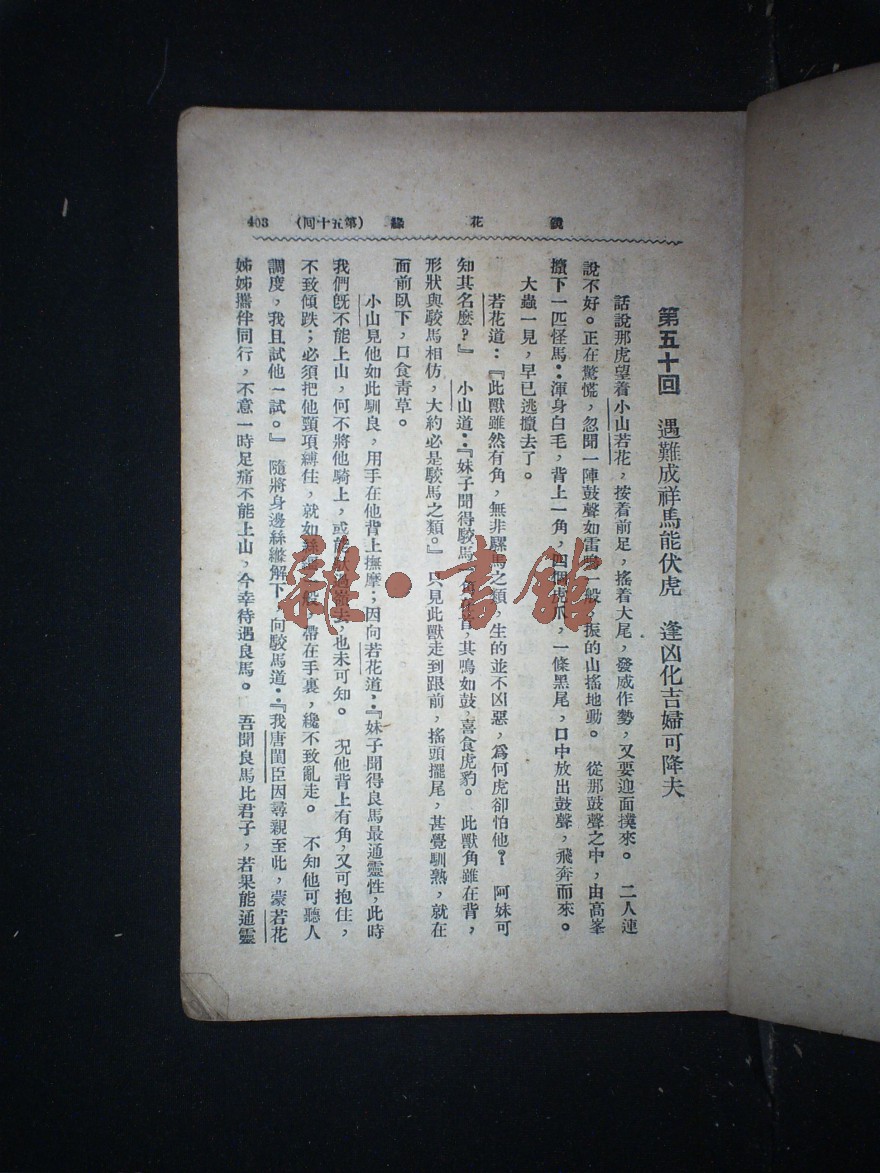 鏡花緣 (第五十回) 403
第五十回　遇難成祥馬能伏虎　逢凶化吉婦可降夫
話說那虎望着小山若花，按着前足，搖着大尾，發威作勢，又要迎面撲來。二人連
說不好。正在驚慌，忽聞一陣鼓聲如雷鳴一般，振的山搖地動。從那鼓聲之中，由高峯
攛下一匹怪馬：渾身白毛，背上一角，四個虎爪，一條黑尾，口中放出鼓聲，飛奔而來。
大蟲一見，早已逃攛去了。
若花道：『此獸雖然有角，無非騾馬之類，生的並不凶惡，爲何虎卻怕他？阿妹可
知其名麽？』小山道：『妹子聞得駮馬一角在首，其鳴如鼓，喜食虎豹。此獸角雖在背，
形狀與駮馬相仿，大約必是駮馬之類。』只見此獸走到跟前，搖頭擺尾，甚覺馴熟，就在
面前臥下，口食靑草。
小山見他如此馴良，用手在他背上撫摩；因向若花道：『妹子聞得良馬最通靈性，此時
我們旣不能上山，何不將他騎上，或 過 去，也未可知。況他背上有角，又可抱住，
不致傾跌；必須把他頸項縛住，就如絲 一般，帶在手裏，纔不致亂走。不知他可聽人
調度，我且試他一試。』隨將身邊絲縧解下，向駮馬道：『我唐閨臣因尋親至此，蒙若花
姊姊攜伴同行，不意一時足痛不能上山，今幸得遇良馬。吾聞良馬比君子，若果能通靈
雜·書館